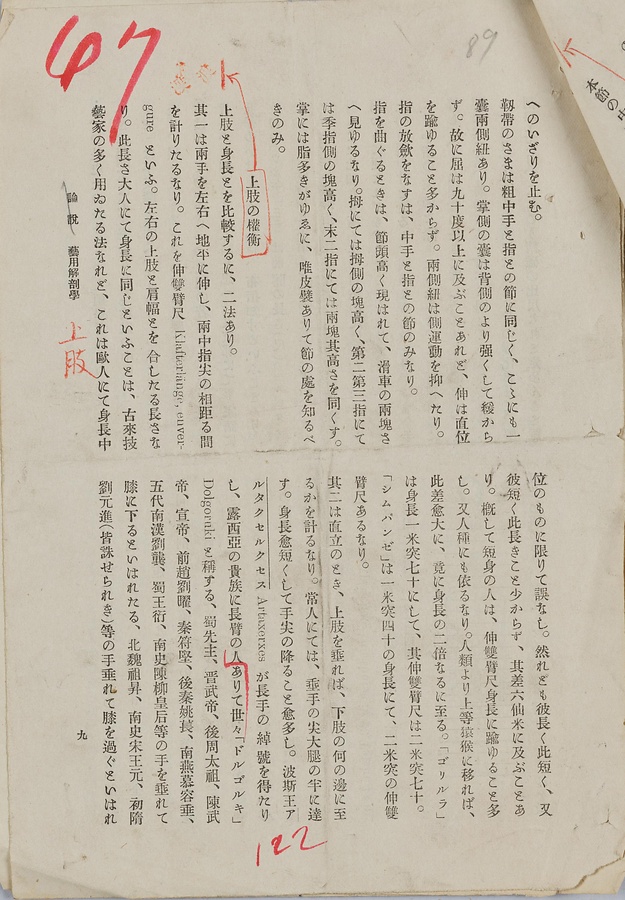 47
89
本節の
へのいざりを止む。
靱帶のさまは粗中手と指との節に同じく、こゝにも一
囊兩側紐あり。掌側の囊は背側のより强くして緩から
ず。故に屈は九十度以上に及ぶことあれど、伸は直位
を踰ゆること多からず。兩側紐は側運動を抑へたり。
指の放斂をなすは、中手と指との節のみなり。
指を曲ぐるときは、節頭高く現はれて、滑車の兩塊さ
へ見ゆるなり。拇にては拇側の塊高く、第二第三指にて
は季指側の塊高く、末二指にては兩塊其高さを同くす。
掌には脂多きがゆゑに、唯皮襞ありて節の處を知るべ
きのみ。
上肢の權衡
上肢と身長とを比較するに、二法あり。
其一は兩手を左右へ地平に伸し、兩中指尖の相距る間
を計りたるなり。これを伸雙臂尺 Klafterlänge, enver-
gure といふ。左右の上肢と肩幅とを合したる長さな
り。此長さ大人にて身長に同じといふことは、古來技
藝家の多く用ゐたる法なれど、これは歐人にて身長中
論說 藝用解剖學
上肢
位のものに限りて誤なし。然れども彼長く此短く、又
彼短く此長きこと少からず、其差六仙米に及ぶことあ
り。槪して短身の人は、伸雙臂尺身長に踰ゆること多
し。又人種にも依るなり。人類より上等猿猴に移れば、
此差愈大に、竟に身長の二倍なるに至る。「ゴリルラ」
は身長一米突七十にして、其伸雙臂尺は二米突七十。
「シムパンゼ」は一米突四十の身長にて、二米突の伸雙
臂尺あるなり。
其二は直立のとき、上肢を垂れば、下肢の何の邊に至
るかを計るなり。常人にては、垂手の尖大腿の半に達
す。身長愈短くして手尖の降ること愈多し。波斯王ア
ルタクセルクセス Artaxerxes が長手の綽號を得たり
し、露西亞の貴族に長臂の人ありて世々「ドルゴルキ」
Dolgoruki と稱する、蜀先主、晋武帝、後周太祖、陳武
帝、宣帝、前趙劉曜、秦符堅、後秦姚萇、南燕慕容垂、
五代南漢劉龑、蜀王衍、南史陳柳皇后等の手を垂れて
膝に下るといはれたる、北魏祖昇、南史宋王元、初隋
劉元進(皆誅せられき)等の手垂れて膝を過ぐといはれ
九
122